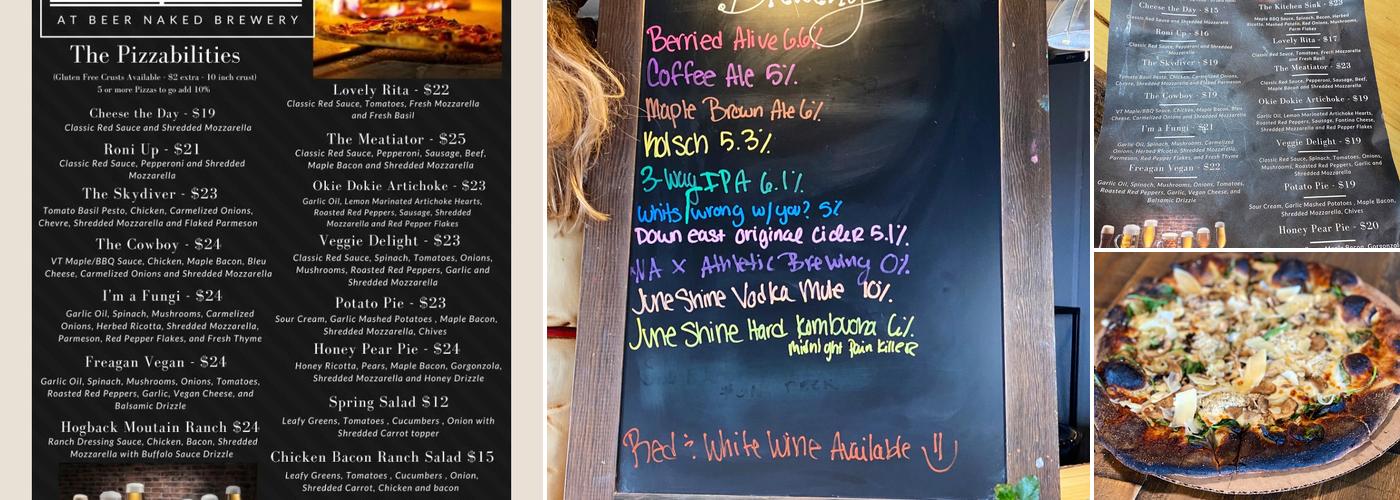 AT BEER NAKED BREWERY
The Pizzabilities
(Gluten Free Crusts Available - $2 extra - 10 inch crust)
5 or more Pizzas to go add 10%
Cheese the Day - $19
Classic Red Sauce and Shredded Mozzarella
Roni Up - $21
Classic Red Sauce, Pepperoni and Shredded
Mozzarella
The Skydiver - $23
Tomato Basil Pesto, Chicken, Carmelized Onions,
Chevre, Shredded Mozzarella and Flaked Parmeson
The Cowboy - $24
VT Maple/BBQ Sauce, Chicken, Maple Bacon, Bleu
Cheese, Carmelized Onions and Shredded Mozzarella
I'm a Fungi - $24
Garlic Oil, Spinach, Mushrooms, Carmelized
Onions, Herbed Ricotta, Shredded Mozzarella,
Parmeson, Red Pepper Flakes, and Fresh Thyme
Freagan Vegan - $24
Garlic Oil, Spinach, Mushrooms, Onions, Tomatoes,
Roasted Red Peppers, Garlic, Vegan Cheese, and
Balsamic Drizzle
Hogback Moutain Ranch $24
Ranch Dressing Sauce, Chicken, Bacon, Shredded
Mozzarella with Buffalo Sauce Drizzle
Lovely Rita - $22
Classic Red Sauce, Tomatoes, Fresh Mozzarella
and Fresh Basil
The Meatiator - $25
Classic Red Sauce, Pepperoni, Sausage, Beef,
Maple Bacon and Shredded Mozzarella
Okie Dokie Artichoke - $23
Garlic Oil, Lemon Marinated Artichoke Hearts,
Roasted Red Peppers, Sausage, Shredded
Mozzarella and Red Pepper Flakes
Veggie Delight - $23
Classic Red Sauce, Spinach, Tomatoes, Onions,
Mushrooms, Roasted Red Peppers, Garlic and
Shredded Mozzarella
Potato Pie - $23
Sour Cream, Garlic Mashed Potatoes , Maple Bacon,
Shredded Mozzarella, Chives
Honey Pear Pie - $24
Honey Ricotta, Pears, Maple Bacon, Gorgonzola,
Shredded Mozzarella and Honey Drizzle
Spring Salad $12
Leafy Greens, Tomatoes , Cucumbers , Onion with
Shredded Carrot topper
Chicken Bacon Ranch Salad $15
Leafy Greens, Tomatoes , Cucumbers , Onion,
Shredded Carrot, Chicken and bacon
Brewery
Berried Alive 6.6%
Coffee Ale 5%
Maple Brown Ale 6%
Kolsch 5.3%
3-Way IPA 6.1%
Whits wrong w/you? 5%
Down east original cider 5.1%
NA x Athletic Brewing 0%
June Shine Vodka Mule 10%
June Shine Hard Kombucha 6%
midnight Pain Killer
Red & White Wine Available
Cheese the Day - $15
Classic Red Sauce and Shredded Mozzarella
Roni Up - $16
Classic Red Sauce, Pepperoni and Shredded
Mozzarella
The Skydiver - $19
Tomato Basil Pesto, Chicken, Carmelized Onions,
Chevre, Shredded Mozzarella and Flaked Parmeson
The Cowboy - $19
VT Maple/BBQ Sauce, Chicken, Maple Bacon, Bleu
Cheese, Carmelized Onions and Shredded Mozzarella
I'm a Fungi - $21
Garlic Oil, Spinach, Mushrooms, Carmelized
Onions, Herbed Ricotta, Shredded Mozzarella,
Parmeson, Red Pepper Flakes, and Fresh Thyme
Freagan Vegan - $22
Garlic Oil, Spinach, Mushrooms, Onions, Tomatoes,
Roasted Red Peppers, Garlic, Vegan Cheese, and
Balsamic Drizzle
The Kitchen Sink - $23
Maple BBQ Sauce, Spinach, Bacon, Herbed
Ricotta, Mashed Potato, Red Onion, Mushrooms,
Parm Flakes
Lovely Rita - $17
Classic Red Sauce, Tomatoes, Fresh Mozzarella
and Fresh Basil
The Meatiator - $23
Classic Red Sauce, Pepperoni, Sausage, Beef,
Maple Bacon and Shredded Mozzarella
Okie Dokie Artichoke - $19
Garlic Oil, Lemon Marinated Artichoke Hearts,
Roasted Red Peppers, Sausage, Fontina Cheese,
Shredded Mozzarella and Red Pepper Flakes
Veggie Delight - $19
Classic Red Sauce, Spinach, Tomatoes, Onions,
Mushrooms, Roasted Red Peppers, Garlic and
Shredded Mozzarella
Potato Pie - $19
Sour Cream, Garlic Mashed Potatoes , Maple Bacon,
Shredded Mozzarella, Chives
Honey Pear Pie - $20
Maple Bacon, Gorgonzola